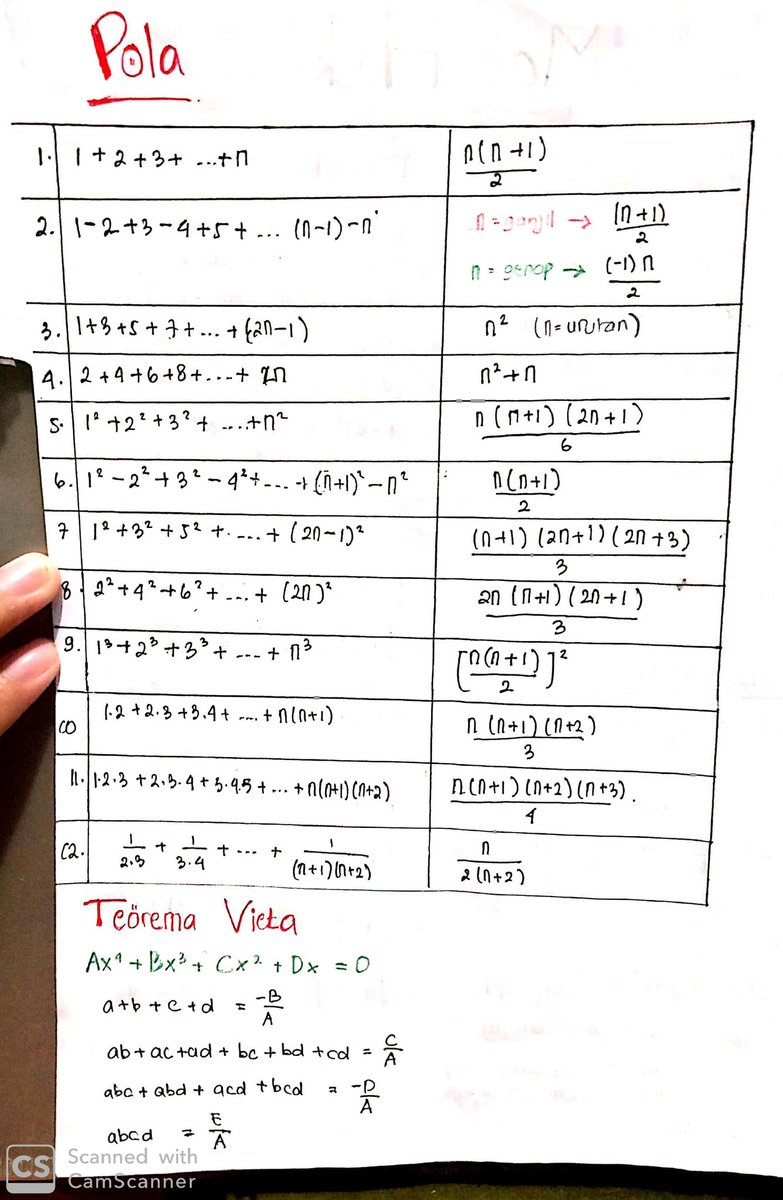 Pola
1. 1 + 2 + 3 + ... + n n(n+1)/2
2. 1 - 2 + 3 - 4 + 5 + ... (n-1) - n n = ganjil → (n+1)/2
n = genap → (-1) n/2
3. 1 + 3 + 5 + 7 + ... + (2n-1) n² (n = urutan)
4. 2 + 4 + 6 + 8 + ... + 2n n² + n
5. 1² + 2² + 3² + ... + n² n(n+1)(2n+1)/6
6. 1² - 2² + 3² - 4² + ... + (n+1)² - n² n(n+1)/2
7 1² + 3² + 5² + ... + (2n-1)² (n+1)(2n+1)(2n+3)/3
8 2² + 4² + 6² + ... + (2n)² 2n(n+1)(2n+1)/3
9. 1³ + 2³ + 3³ + ... + n³ [n(n+1)/2]²
10 1.2 + 2.3 + 3.4 + ... + n(n+1) n(n+1)(n+2)/3
11. 1.2.3 + 2.3.4 + 3.4.5 + ... + n(n+1)(n+2) n(n+1)(n+2)(n+3)/4
12. 1/2.3 + 1/3.4 + ... + 1/(n+1)(n+2) n/2(n+2)
Teörema Vieta
Ax⁴ + Bx³ + Cx² + Dx = 0
a + b + c + d = -B/A
ab + ac + ad + bc + bd + cd = C/A
abc + abd + acd + bcd = -D/A
abcd = E/A
CS Scanned with
CamScanner